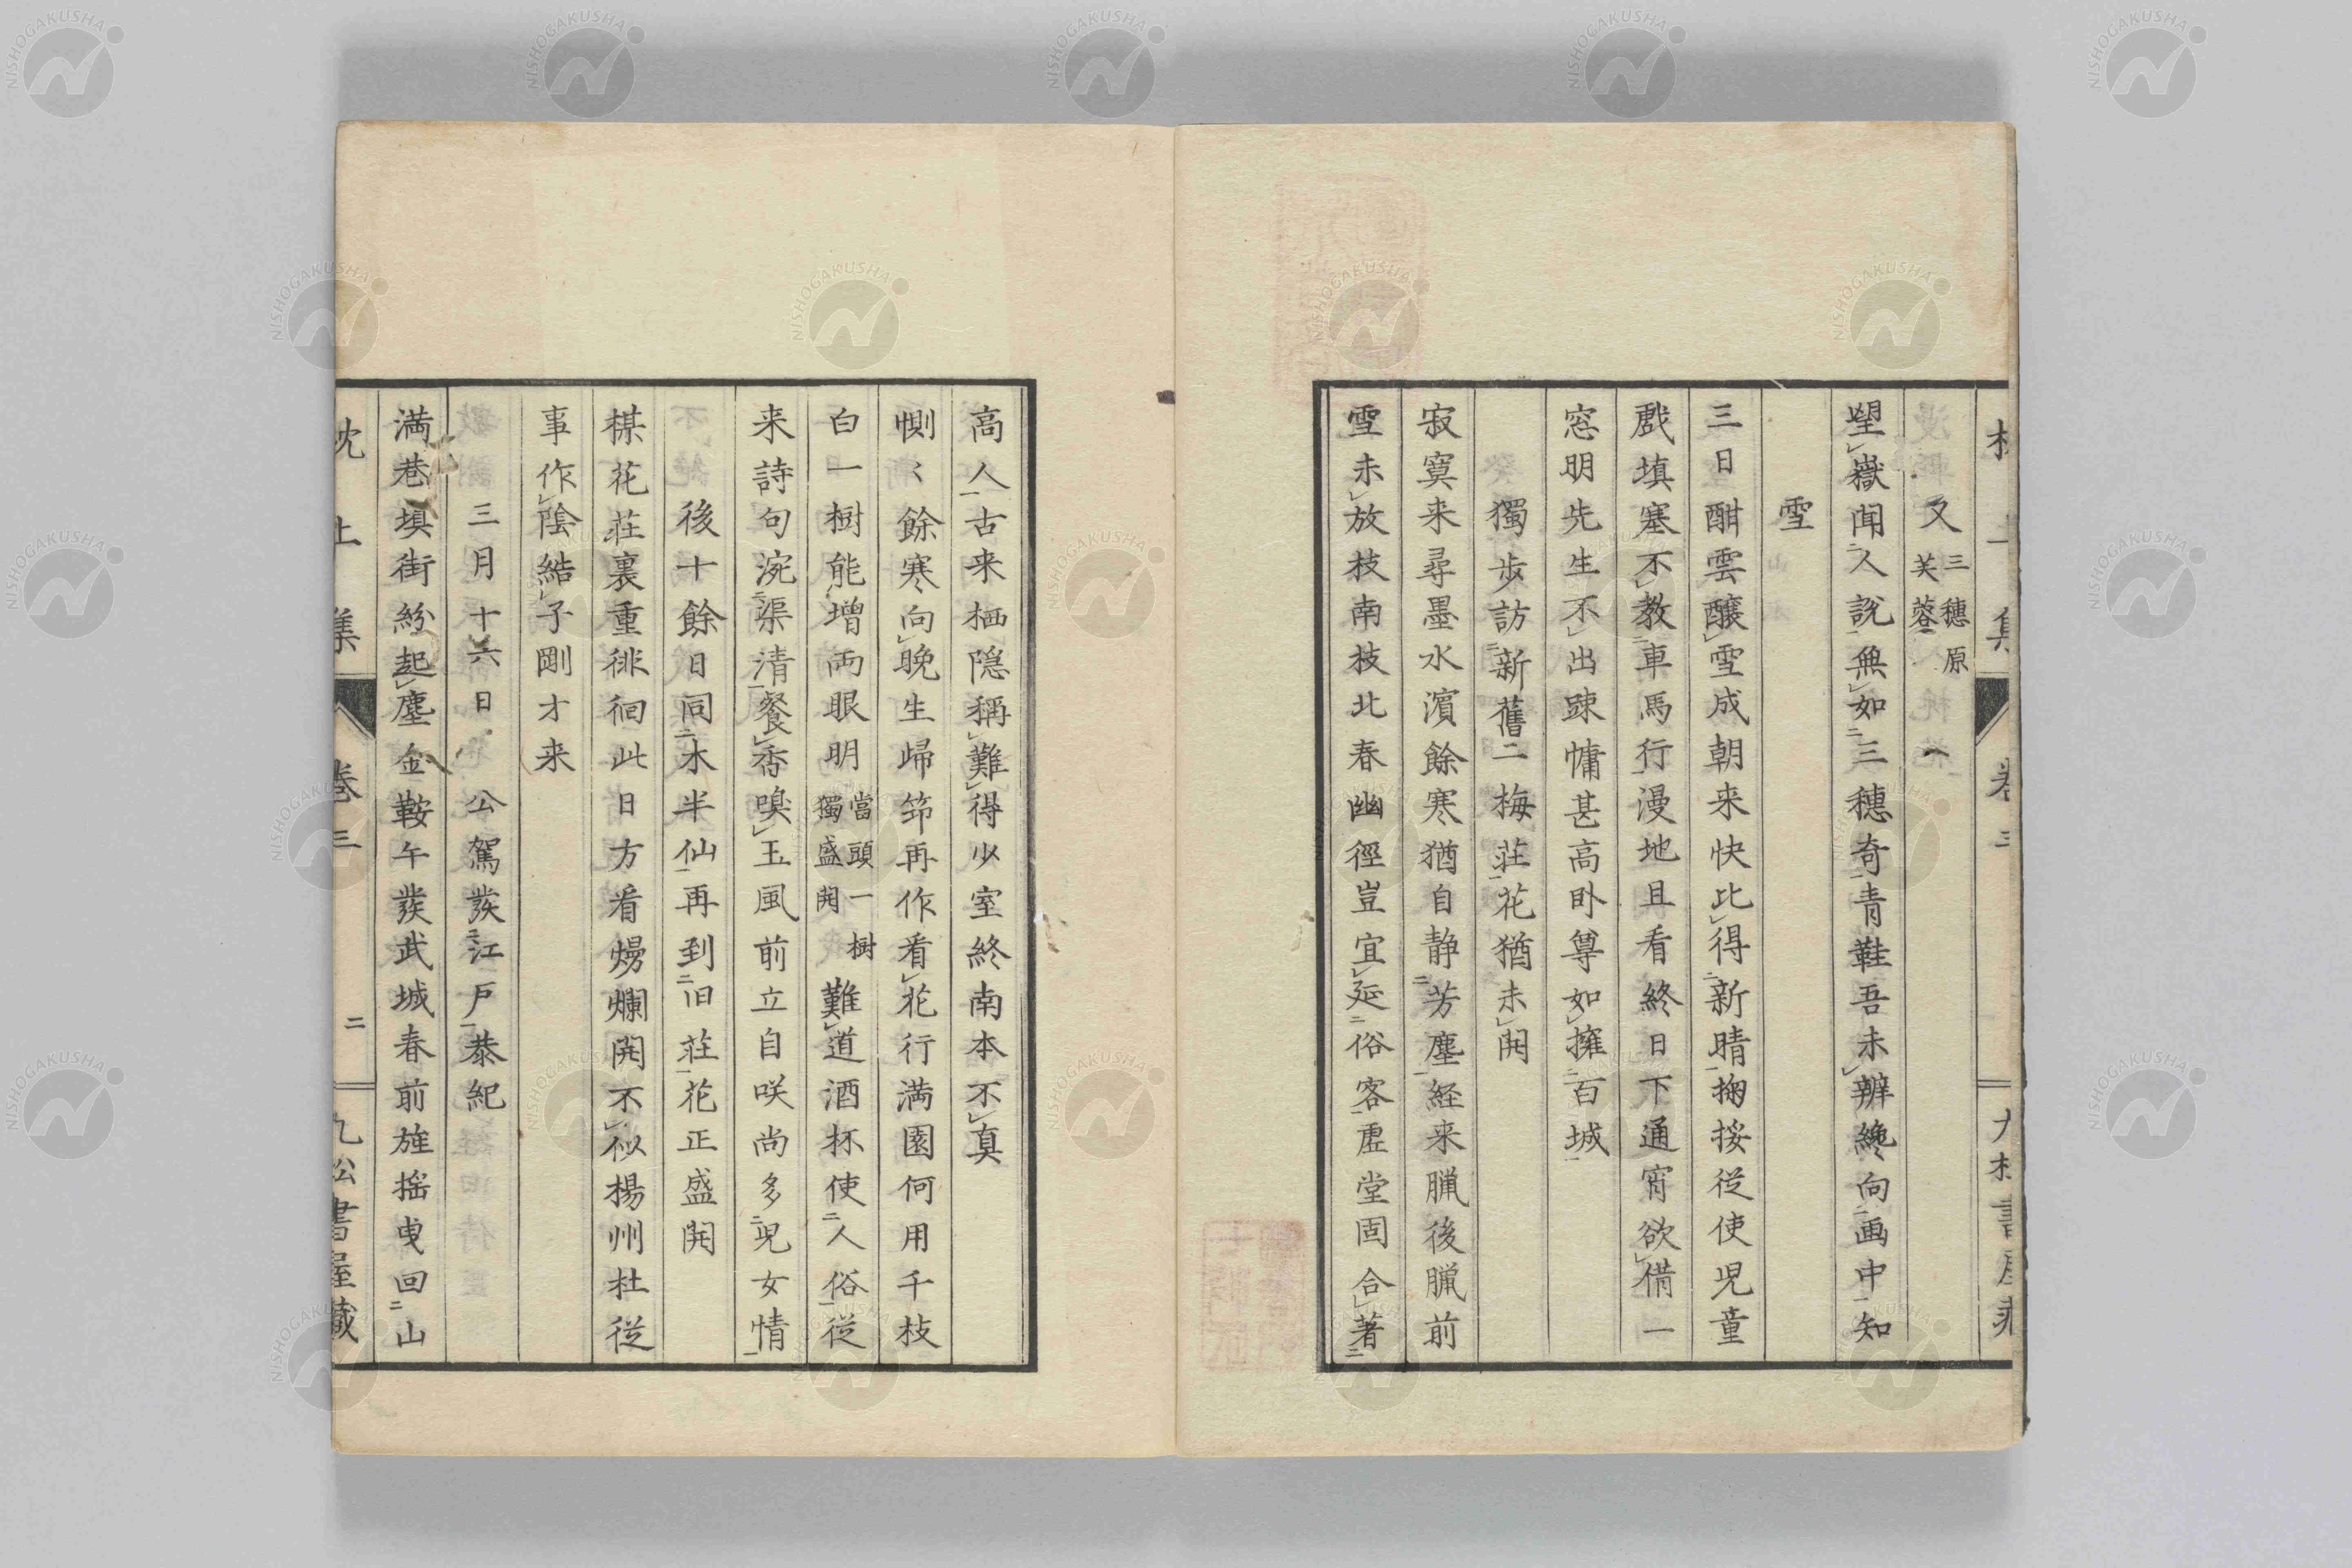 又 三穗原 芙蓉
望嶽聞人說無如三穗奇青鞋吾未辨纔向画中知
雪
三日酣雲釀雪成朝来快比得新晴掬挼従使児童
戲塡塞不教車馬行漫地且看終日下通宵欲備一
窓明先生不出踈慵甚高卧尊如擁百城
獨歩訪新舊二梅莊花猶未開
寂寞来尋墨水濱餘寒猶自静芳塵経来臘後臘前
雪未放枝南枝北春幽徑豈宜延俗客虚堂固合著
高人古来栖隠稱難得少室終南本不真
惻々餘寒向晩生歸笻再作看花行満園何用千枝
白一樹能增両眼明 當頭一樹獨盛開 難道酒杯使人俗従
来詩句涴渠清餐香嗅玉風前立自咲尚多児女情
後十餘日同木半仙再到旧莊花正盛開
棋花莊裏重徘徊此日方看爛爛開不似揚州杜従
事作陰結子剛才来
三月十六日 公駕發江戸恭紀
満巷塡街紛起塵金鞍午發武城春前旌揺曳回山
枕上集 巻三 二 九松書屋藏